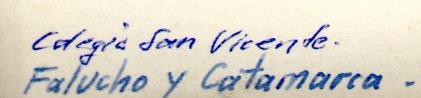 Colegio San Vicente.
Falucho y Catamarca.